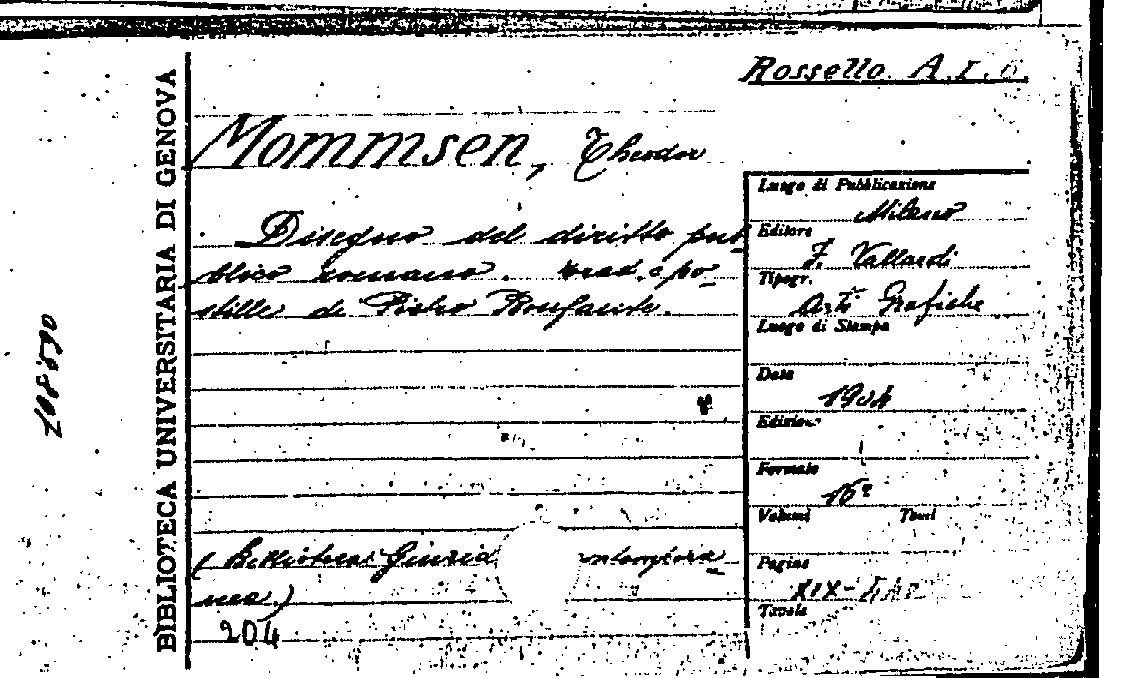 Rossello. A. I. 6.
Mommsen, Theodor
Disegno del diritto pub-
blico romano. trad. e po-
stille di Pietro Bonfante.
(Biblioteca Giurid ontempora-
nea.)
204
BIBLIOTECA UNIVERSITARIA DI GENOVA
Luogo di Pubblicazione
Milano
Editore
F. Vallardi
Tipogr.
Arti Grafiche
Luogo di Stampa
Data
1904
Edizione
Formato
16º
Volumi Tomi
Pagine
XIX-
Tavole